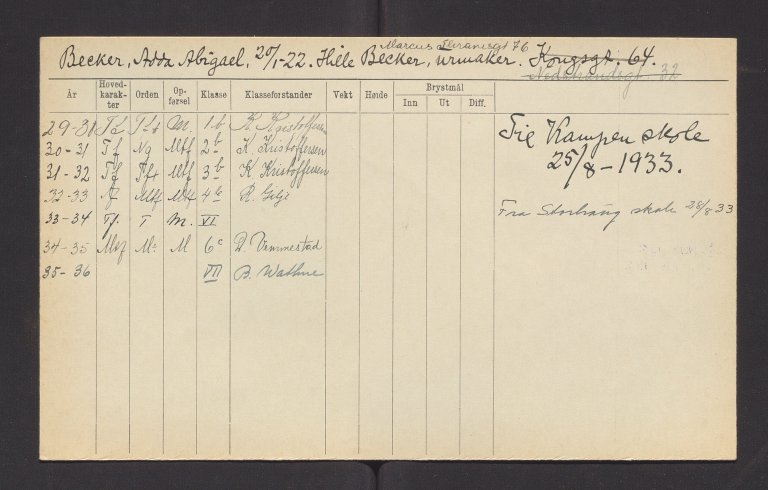 Marcus Thranesgt 76
Becker, Adda Abigael, 20/1-22. Hille Becker, urmaker. Kongsgt. 64.
32
År Hoved-karak-ter Orden Op-førsel Klasse Klasseforstander Vekt Høide Brystmål
Inn Ut Diff.
29-30 Tf Tf+ M. 1b K. Kristoffersen
30-31 Tf Ng Mtf 2b K. Kristoffersen
31-32 Tf Tf+ Mtf 3b K Kristoffersen
32-33 Tf Mtf Mtf 4b R. Gilje
33-34 Tf. T M. VI
34-35 Mtf M- M 6c D. Vemmestad
35-36 VII B. Wathne
Til Kampen skole
25/8-1933.
Fra Storhaug skole 28/8 33